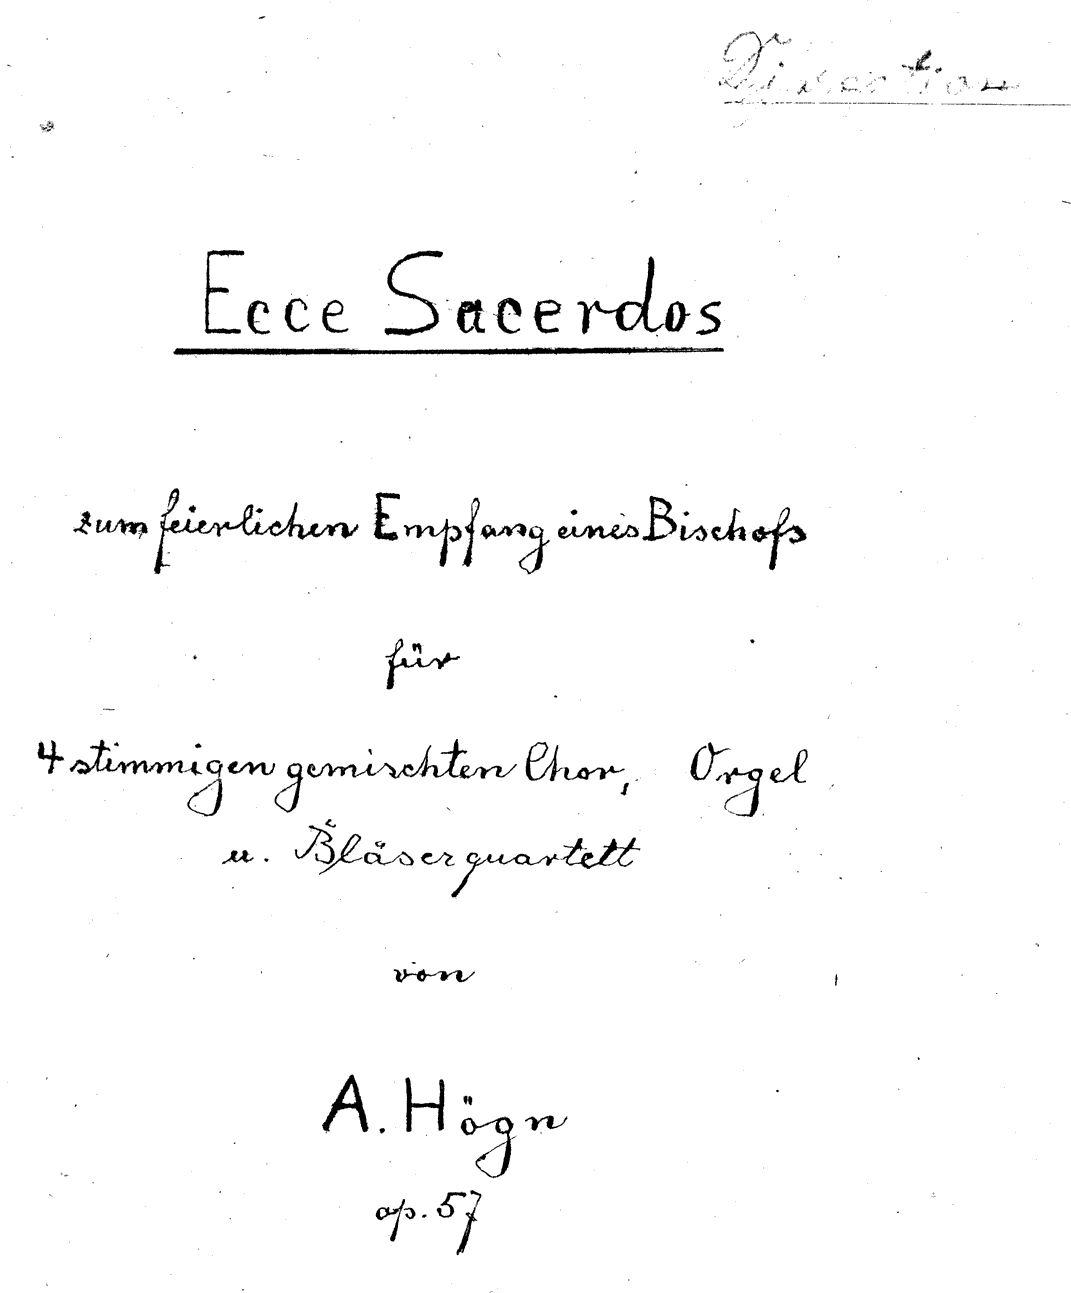 Direction
Ecce Sacerdos
zum feierlichen Empfang eines Bischofs
für
4 stimmigen gemischten Chor, Orgel
u. Bläserquartett
von
A. Högn
op. 57